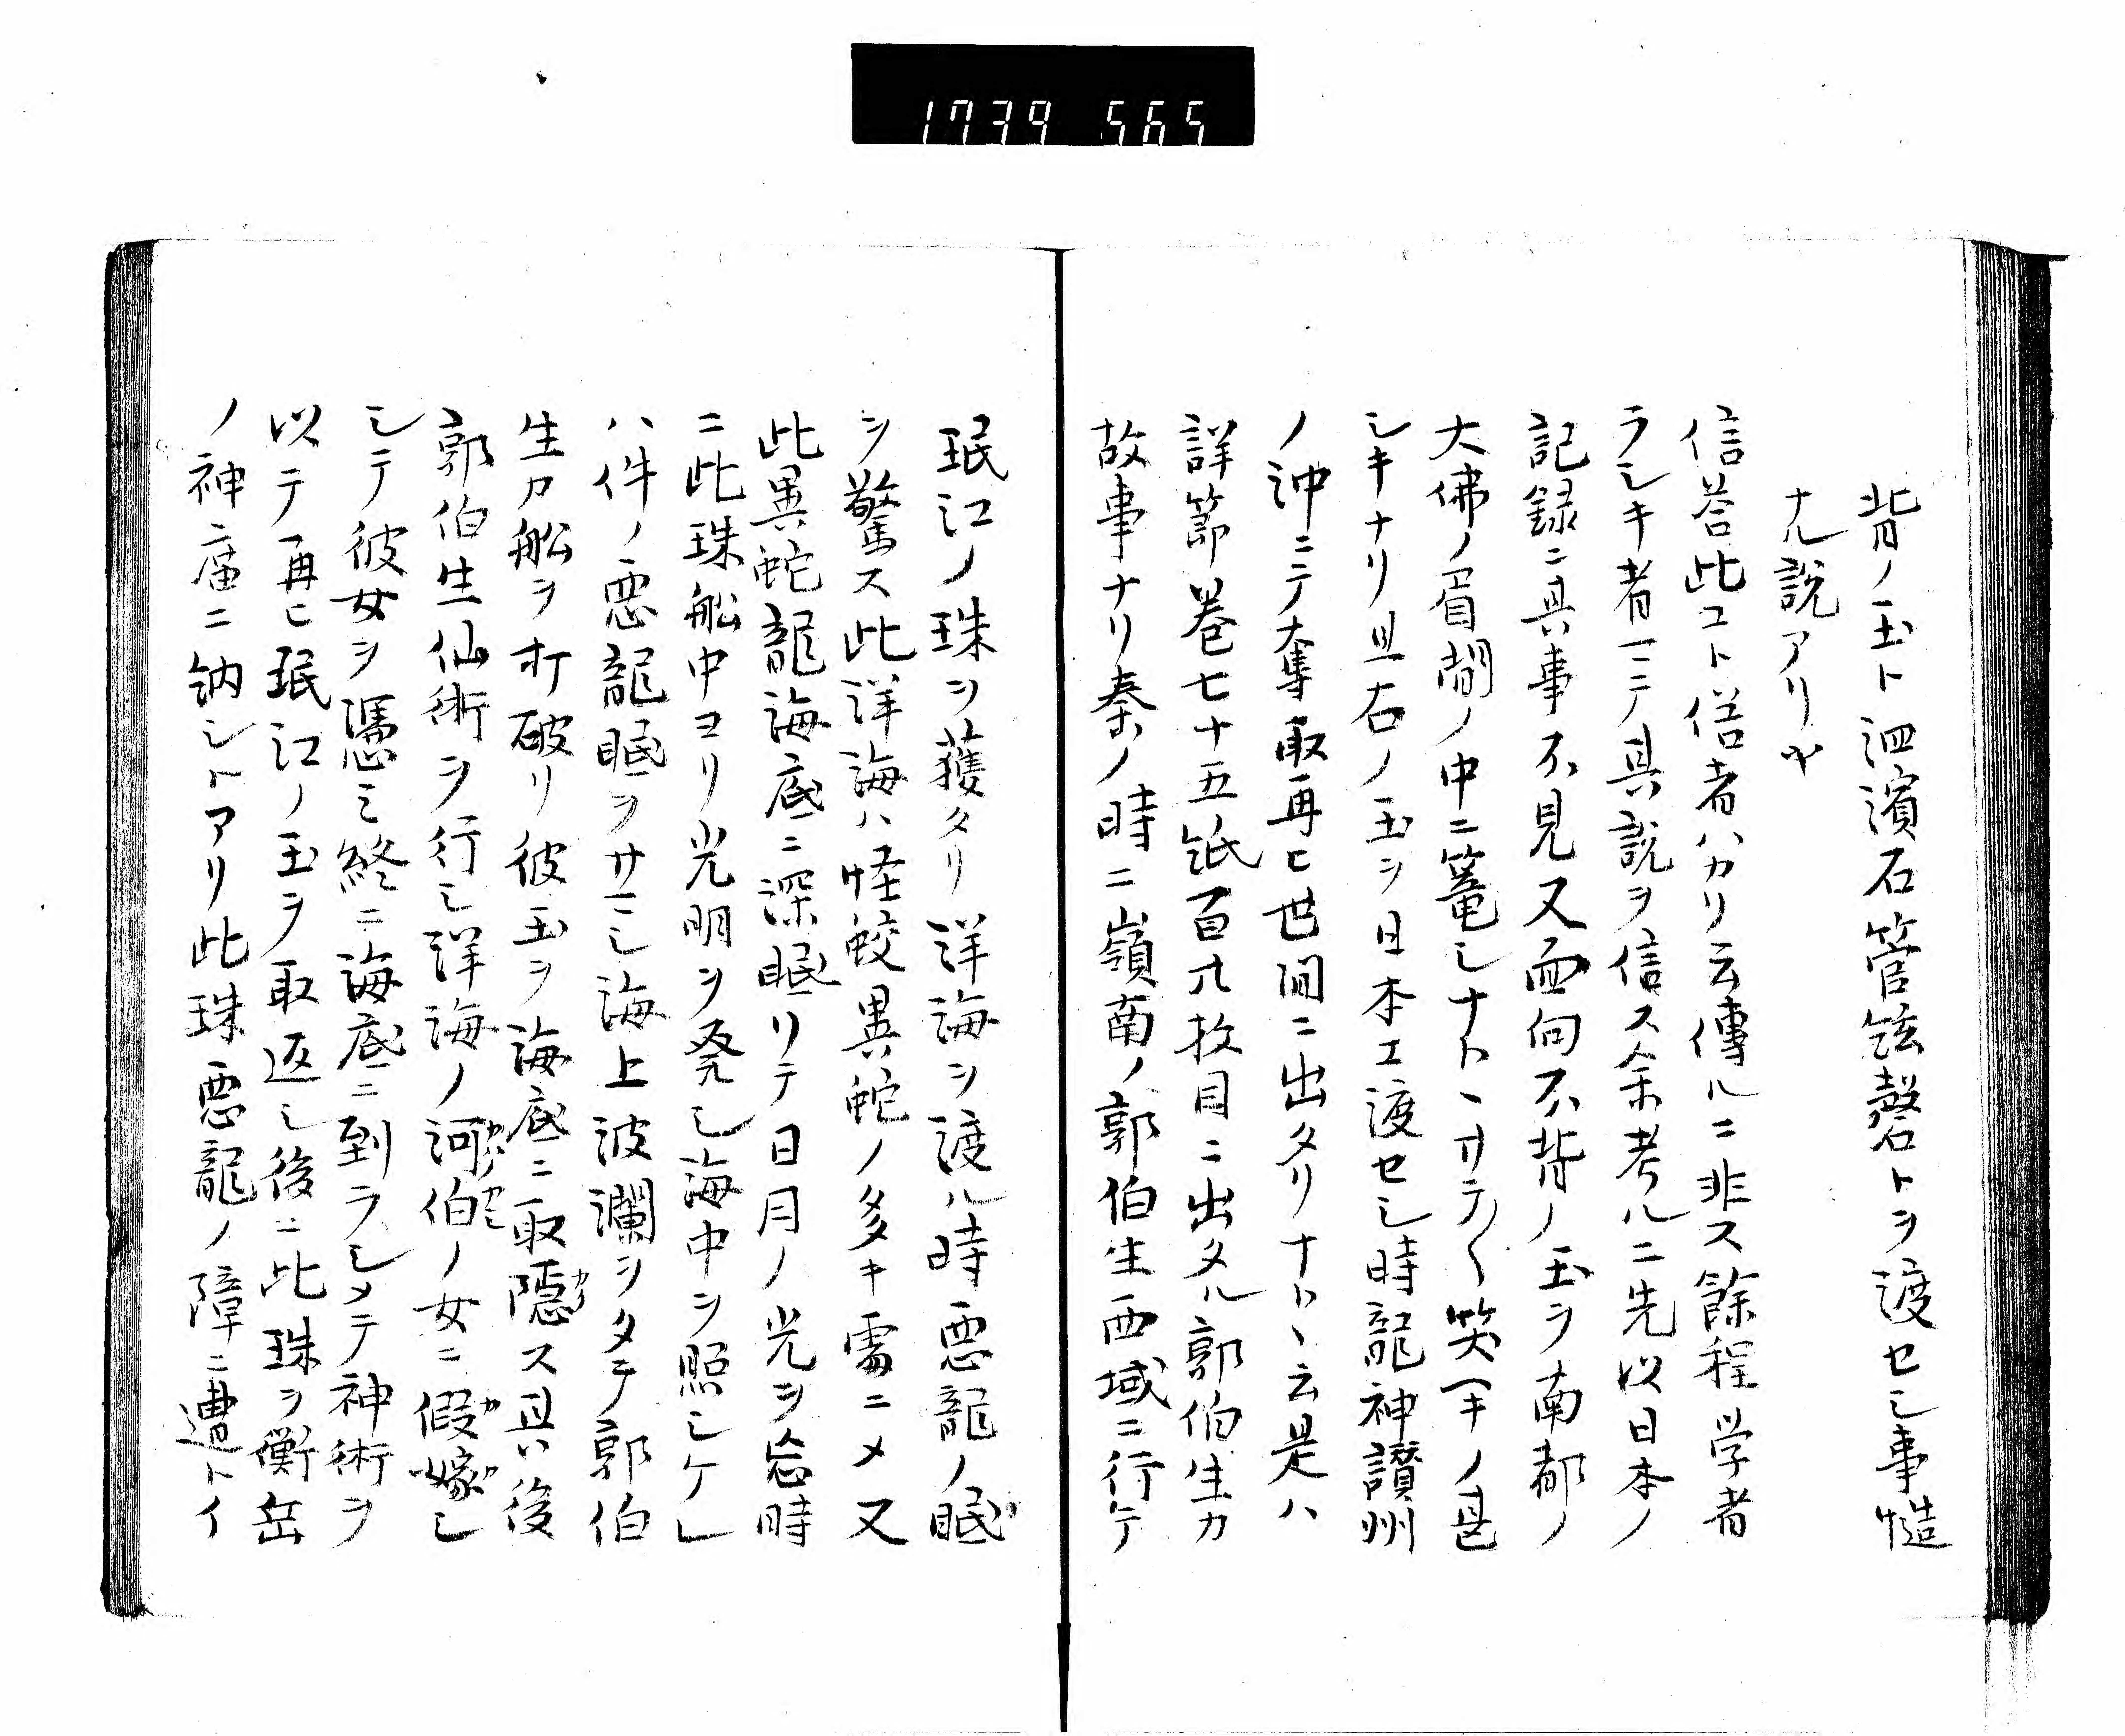 1739 565
背ノ玉ト泗濱石管絃磬トヲ渡セシ事慥
ナル説アリヤ
信答此コト信者ハカリ云傳ルニ非ス餘程学者
ラシキ者一ニテ其説ヲ信ス余考ルニ先以日本ノ
記録ニ其事不見又面向不背ノ玉ヲ南都ノ
大佛ノ眉間ノ中ニ篭シナトヽサテ〱笑キノ甚
シキナリ且右ノ玉ヲ日本エ渡セシ時龍神讃州
ノ沖ニテ奪取再ヒ世間ニ出タリナトヽ云是ハ
詳節巻七十五紙百廿枚目ニ出タル郭伯生カ
故事ナリ秦ノ時ニ嶺南ノ郭伯生西域ニ行テ
珉江ノ珠ヲ獲タリ洋海ヲ渡ル時悪龍ノ眠
ヲ驚ス此洋海ハ怪蛟異蛇ノ多キ所ニメ又
此異蛇龍海底ニ深眠リテ日月ノ光ヲ忘時
ニ此珠舩中ヨリ光明ヲ発シ海中ヲ照シケレ
ハ件ノ悪龍眠ヲサマシ海上波瀾ヲタテ郭伯
生カ舩ヲ打破リ彼玉ヲ海底ニ取隠ス其後
郭伯生仙術ヲ行シ洋海ノ河伯ノ女ニ假嫁シ
シテ彼女ヲ憑ミ終ニ海底ニ到ラシメテ神術ヲ
以テ再ヒ珉江ノ玉ヲ取返シ後ニ此珠ヲ衡岳
ノ神庿ニ納シトアリ此珠悪龍ノ障ニ遭トイ